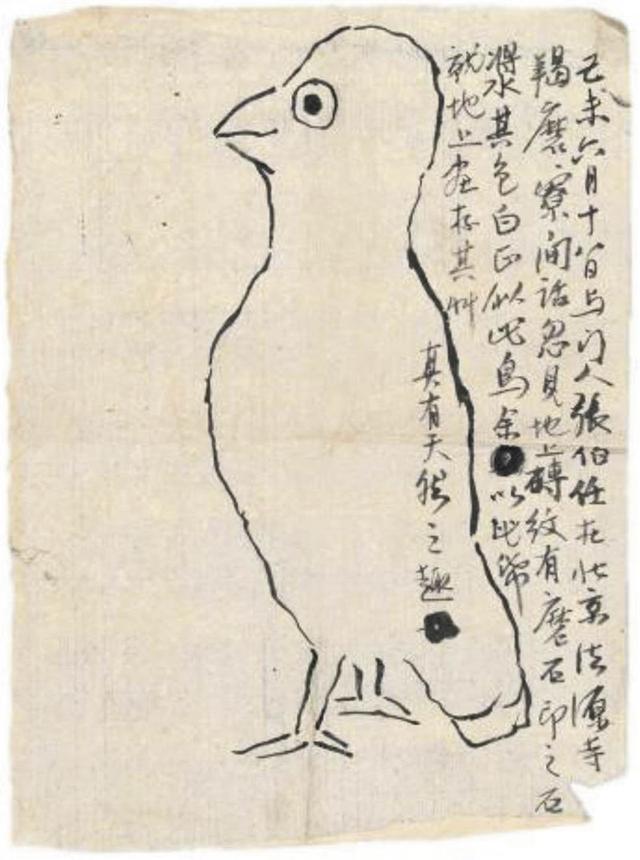 己未六月十八日与门人張伯任在北京法源寺
羯磨寮间話忽見地上磚紋有磨石印之石
漿其色白正似此鳥余以此纸
就地上画存其艸
真有天然之趣